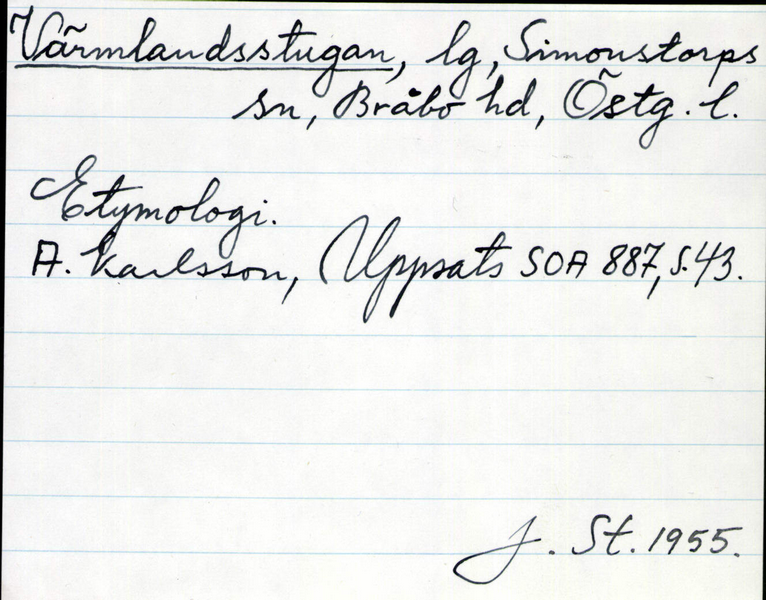 Värmlandsstugan, lg, Simonstorps
sn, Bråbo hd, Östg. l.
Etymologi.
A. Karlsson, Uppsats SOA 887, s. 43.
J. St. 1955.